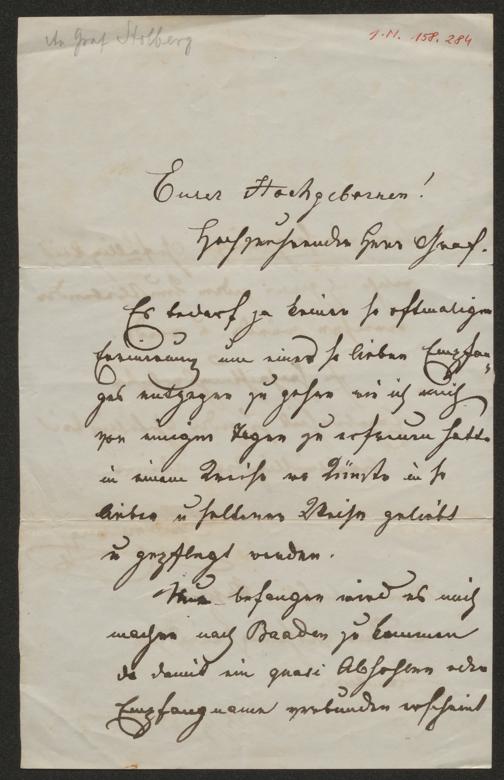 An Graf Stolberg
I.N. 158.284
Eurer Hochgeborren!
Hochzuehrender Herr Graf.
Es bedarf ja keiner so oftmaligen
Erinnerung um einer so lieben Empfan-
ges entgegen zu gehen wie ich mich
vor einigen Tagen zu erfreuen hatte
in einem Kreise wo Künste in so
lieber u seltener Weise geliebt
u gepflegt werden.
Nur befangen wird es mich
machen nach Baaden zu kommen
da damit ein quasi Abhohlen oder
Empfangname verbunden erscheint